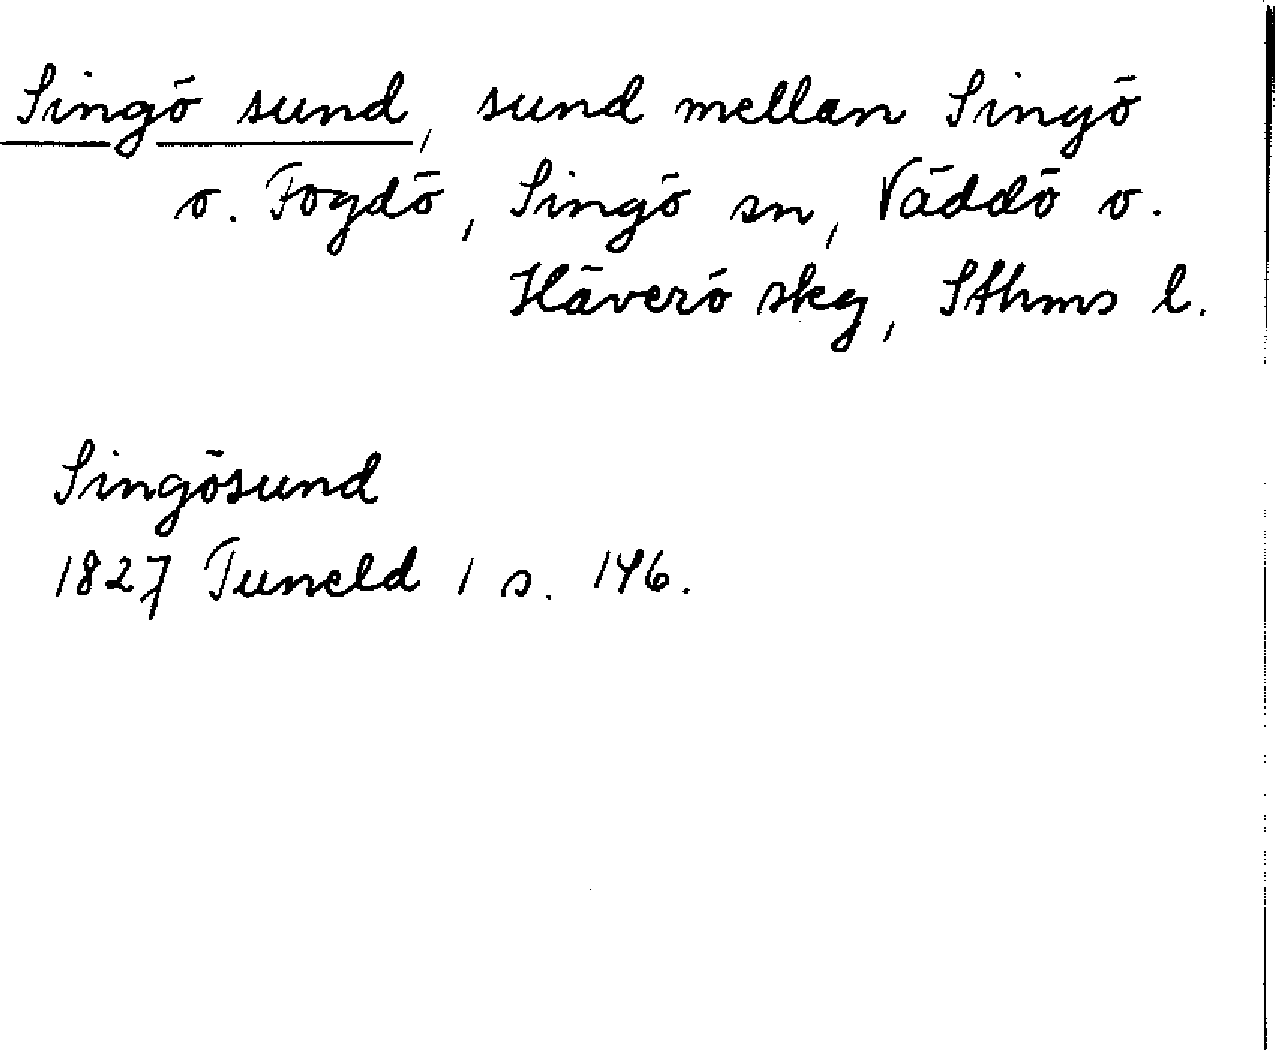 Singö sund, sund mellan Singö
o. Fogdö, Singö sn, Väddö o.
Häverö skg, Sthms l.
Singösund
1827 Tuneld 1 s. 146.